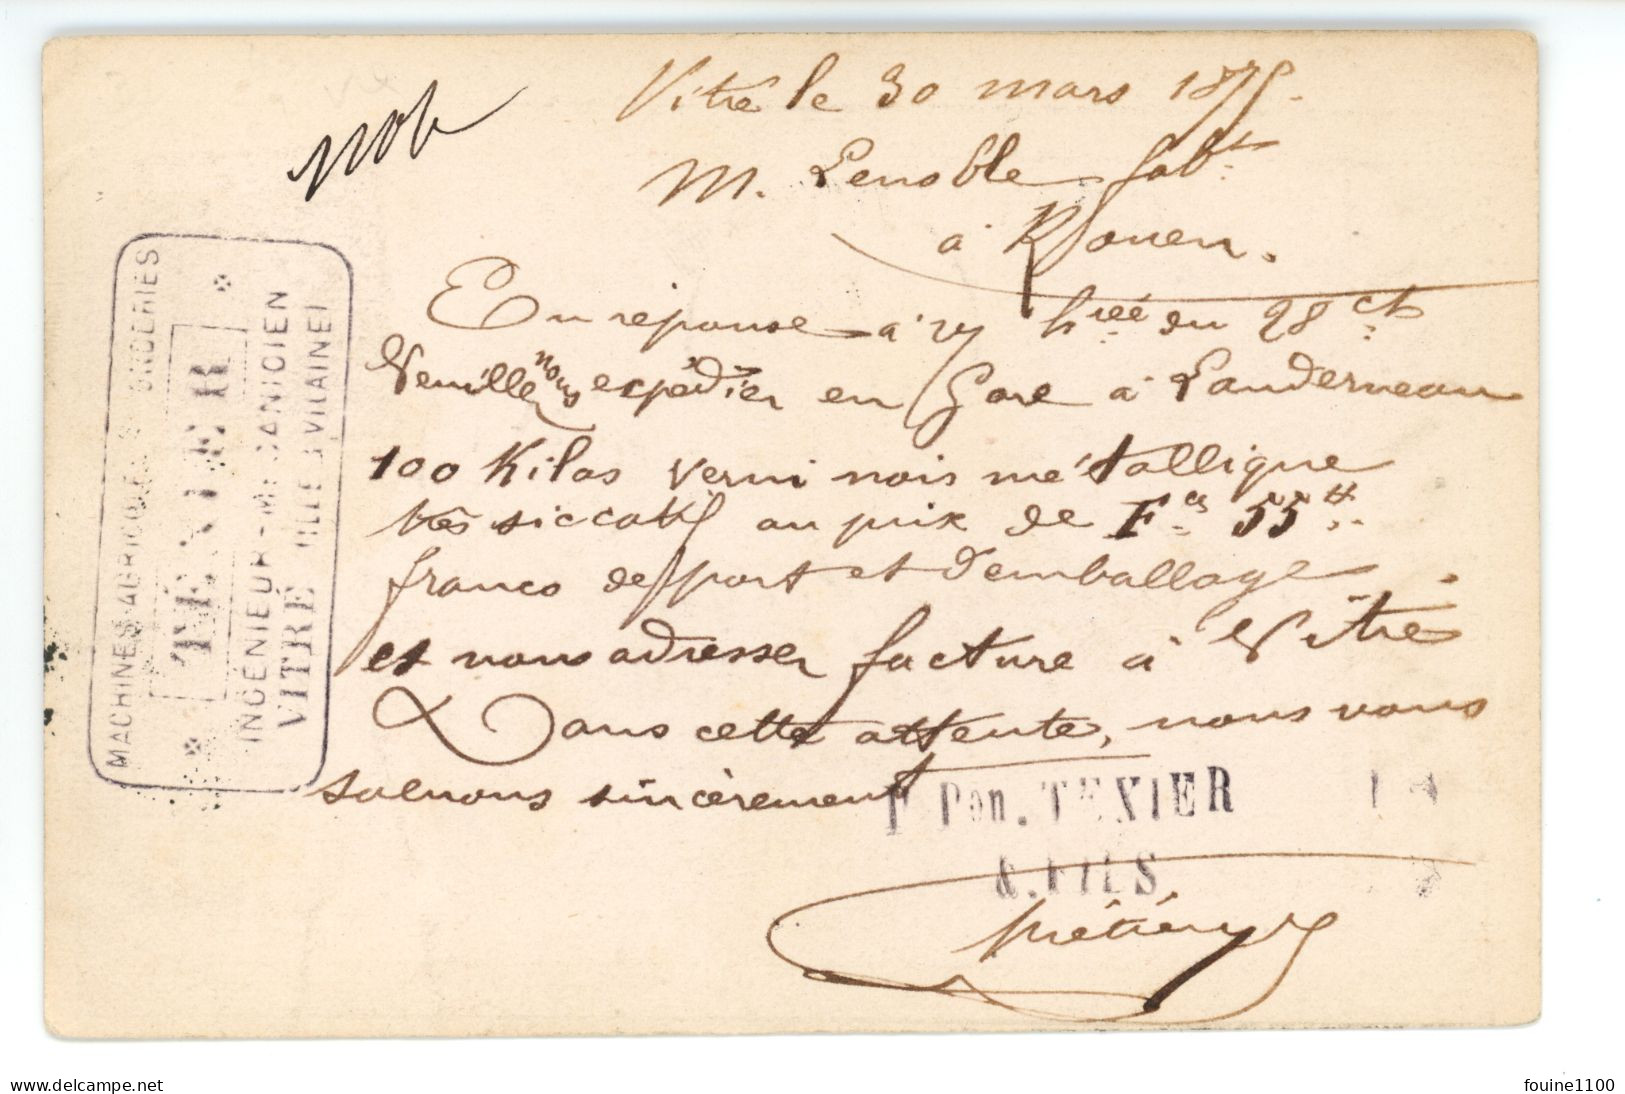 Vitré le 30 mars 1875.
M. Lenoble fabt.
à Rouen.
En réponse à v/ hrée du 28 ct
Veuillez nous expédier en Gare à Landerneau
100 Kilos verni noir métallique
très siccatif au prix de Fcs 55 tt
franco de port et d'emballage.
et nous adresser facture à Vitré
Dans cette attente, nous vous
saluons sincèrement
P Pon. TEXIER
& FILS
MACHINES AGRICOLES
TEXIER
INGÉNIEUR-MÉCANICIEN
VITRÉ (ILLE & VILAINE)
delcampe.net
fouine1100